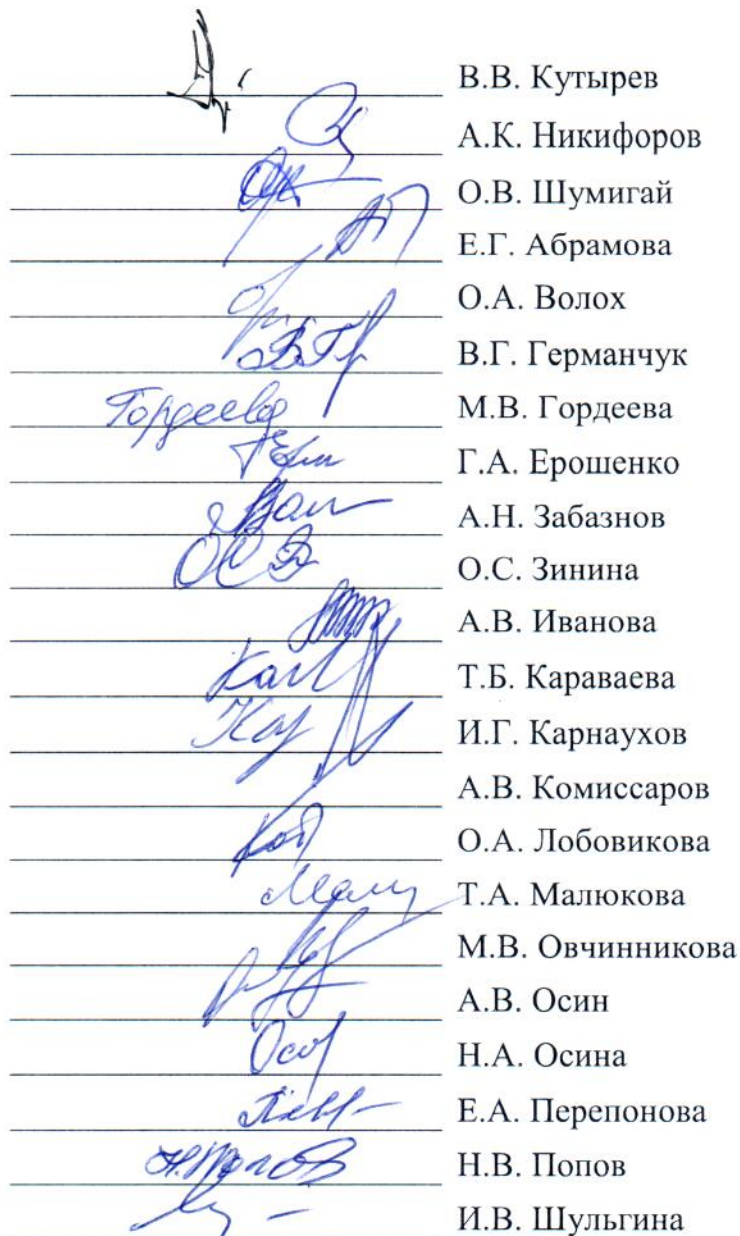 В.В. Кутырев
А.К. Никифоров
О.В. Шумигай
Е.Г. Абрамова
О.А. Волох
В.Г. Германчук
Гордеева М.В. Гордеева
Г.А. Ерошенко
А.Н. Забазнов
О.С. Зинина
А.В. Иванова
Т.Б. Караваева
И.Г. Карнаухов
А.В. Комиссаров
О.А. Лобовикова
Т.А. Малюкова
М.В. Овчинникова
А.В. Осин
Н.А. Осина
Е.А. Перепонова
Н.Попов Н.В. Попов
И.В. Шульгина